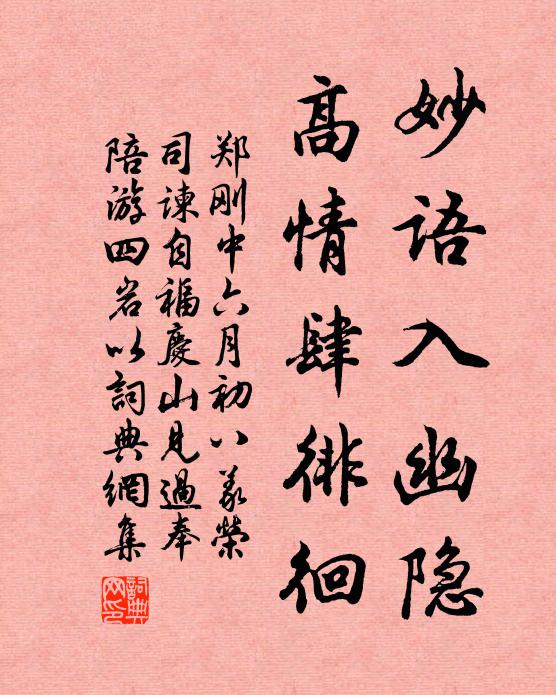 妙语入幽隐
高情肆徘徊
郑刚中六月初八义荣
司谏自福庆山见过奉
陪游四岩以詞典網集
詞典网印